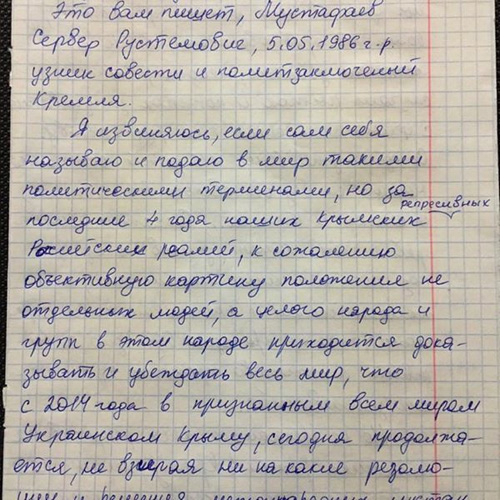 Это вам пишет, Мустафаев
Сервер Рустемович, 5.05.1986 г.р.
узник совести и политзаключеный
Кремля.
Я извиняюсь, если сам себя
называю и подаю в мир такими
политическими терменами, но за
репресивных
последние 4 года наших Крымских
Росийских реалий, к сожалению
объективную картину положения не
отдельных людей, а целого народа и
групп в этом народе приходится дока-
зывать и убеждать весь мир, что
с 2014 года в признанным всем миром
Украинском Крыму, сегодня продолжа-
ется, не взирая ни на какие резолю-
ции и решения